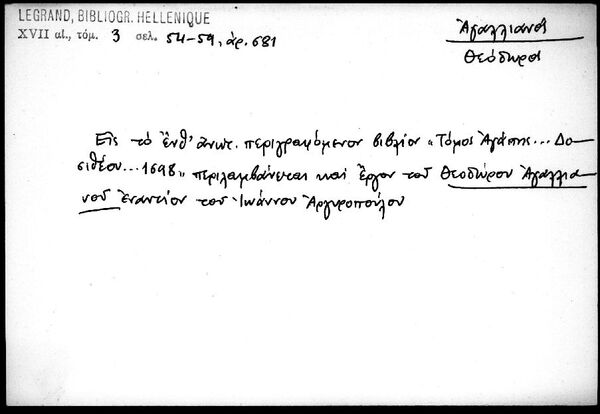 LEGRAND, BIBLIOGR. HELLENIQUE
XVII αἰ., τόμ. 3 σελ. 54-59, ἀρ. 681
Ἀγαλλιανὸς
Θεόδωρος
Εἰς τὸ ἔνθ' ἀνωτ. περιγραφόμενον βιβλίον «Τόμος Ἀγάπης... Δο-
σιθέου... 1698» περιλαμβάνεται καὶ ἔργον τοῦ Θεοδώρου Ἀγαλλια-
νοῦ ἐναντίον τοῦ Ἰωάννου Ἀργυροπούλου